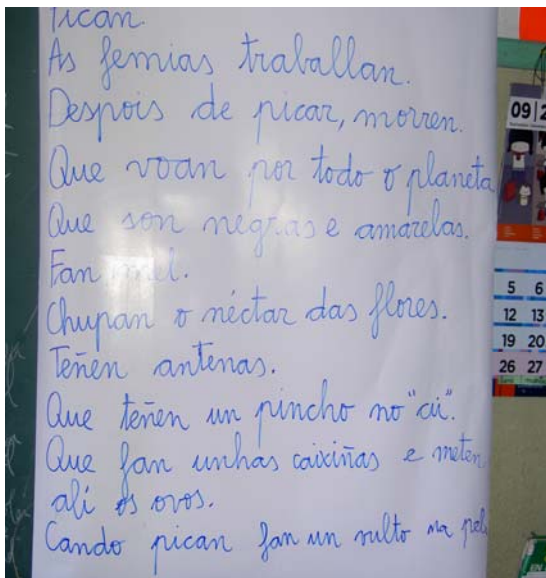 Pican.
As femias traballan.
Despois de picar, morren.
Que voan por todo o planeta
Que son negras e amarelas.
Fan mel.
Chupan o néctar das flores.
Teñen antenas.
Que teñen un pincho no "cú".
Que fan unhas caixiñas e meten
alí os ovos.
Cando pican fan un vulto na
09 2
5 6
12 13
19 20
26 27